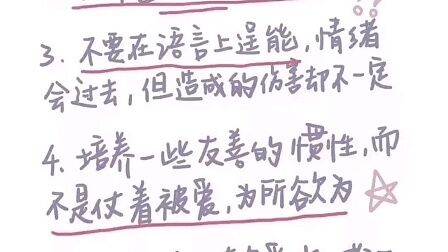 3. 不要在语言上逞能,情绪
会过去,但造成的伤害却不一定
4. 培养一些友善的惯性,而
不是仗着被爱,为所欲为